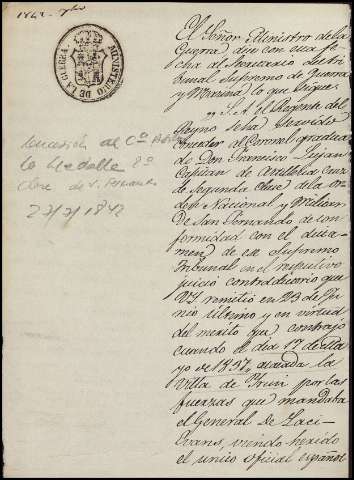 MINISTERIO DE LA GUERRA.
Concesión al
la Medalla 2ª
Clase de S. Fernando
27/7/1842
El Señor Ministro de la
Guerra dijo con esta fe-
cha al Secretario del tri-
bunal Supremo de Guerra
y Marina lo que sigue
S. A. el Regente del
Reyno se ha servido
conceder al Coronel gradua-
do Don Francisco Lujan
Capitan de Artilleria Cruz
de segunda clase de la or-
den Nacional y Militar
de San Fernando de con-
formidad con el dicta-
men de ese Supremo
Tribunal en el respectivo
juicio contradictorio que
V.S. remitió en 23 de Ju-
nio último y en virtud
del merito que contrajo
cuando el dia 17 de Ma-
yo de 1837, atacada la
Villa de Irun por las
fuerzas que mandaba
el General de Laci-
Evans, siendo herido
el unico oficial español